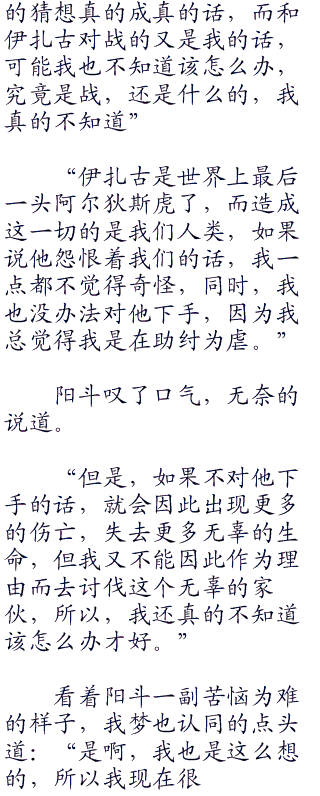 的猜想真的成真的话，而和
伊扎古对战的又是我的话，
可能我也不知道该怎么办，
究竟是战，还是什么的，我
真的不知道”
“伊扎古是世界上最后
一头阿尔狄斯虎了，而造成
这一切的是我们人类，如果
说他怨恨着我们的话，我一
点都不觉得奇怪，同时，我
也没办法对他下手，因为我
总觉得我是在助纣为虐。”
阳斗叹了口气，无奈的
说道。
“但是，如果不对他下
手的话，就会因此出现更多
的伤亡，失去更多无辜的生
命，但我又不能因此作为理
由而去讨伐这个无辜的家
伙，所以，我还真的不知道
该怎么办才好。”
看着阳斗一副苦恼为难
的样子，我梦也认同的点头
道：“是啊，我也是这么想
的，所以我现在很